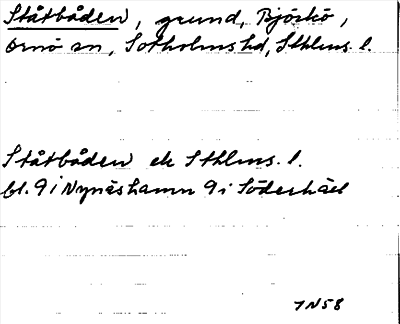 Ståtbåden, grund, Björkö,
Ornö sn, Sotholms hd, Sthlms. l.
Ståtbåden ek Sthlms. l.
bl. 9 i Nynäshamn 9 i Söderhäll
7 N 58